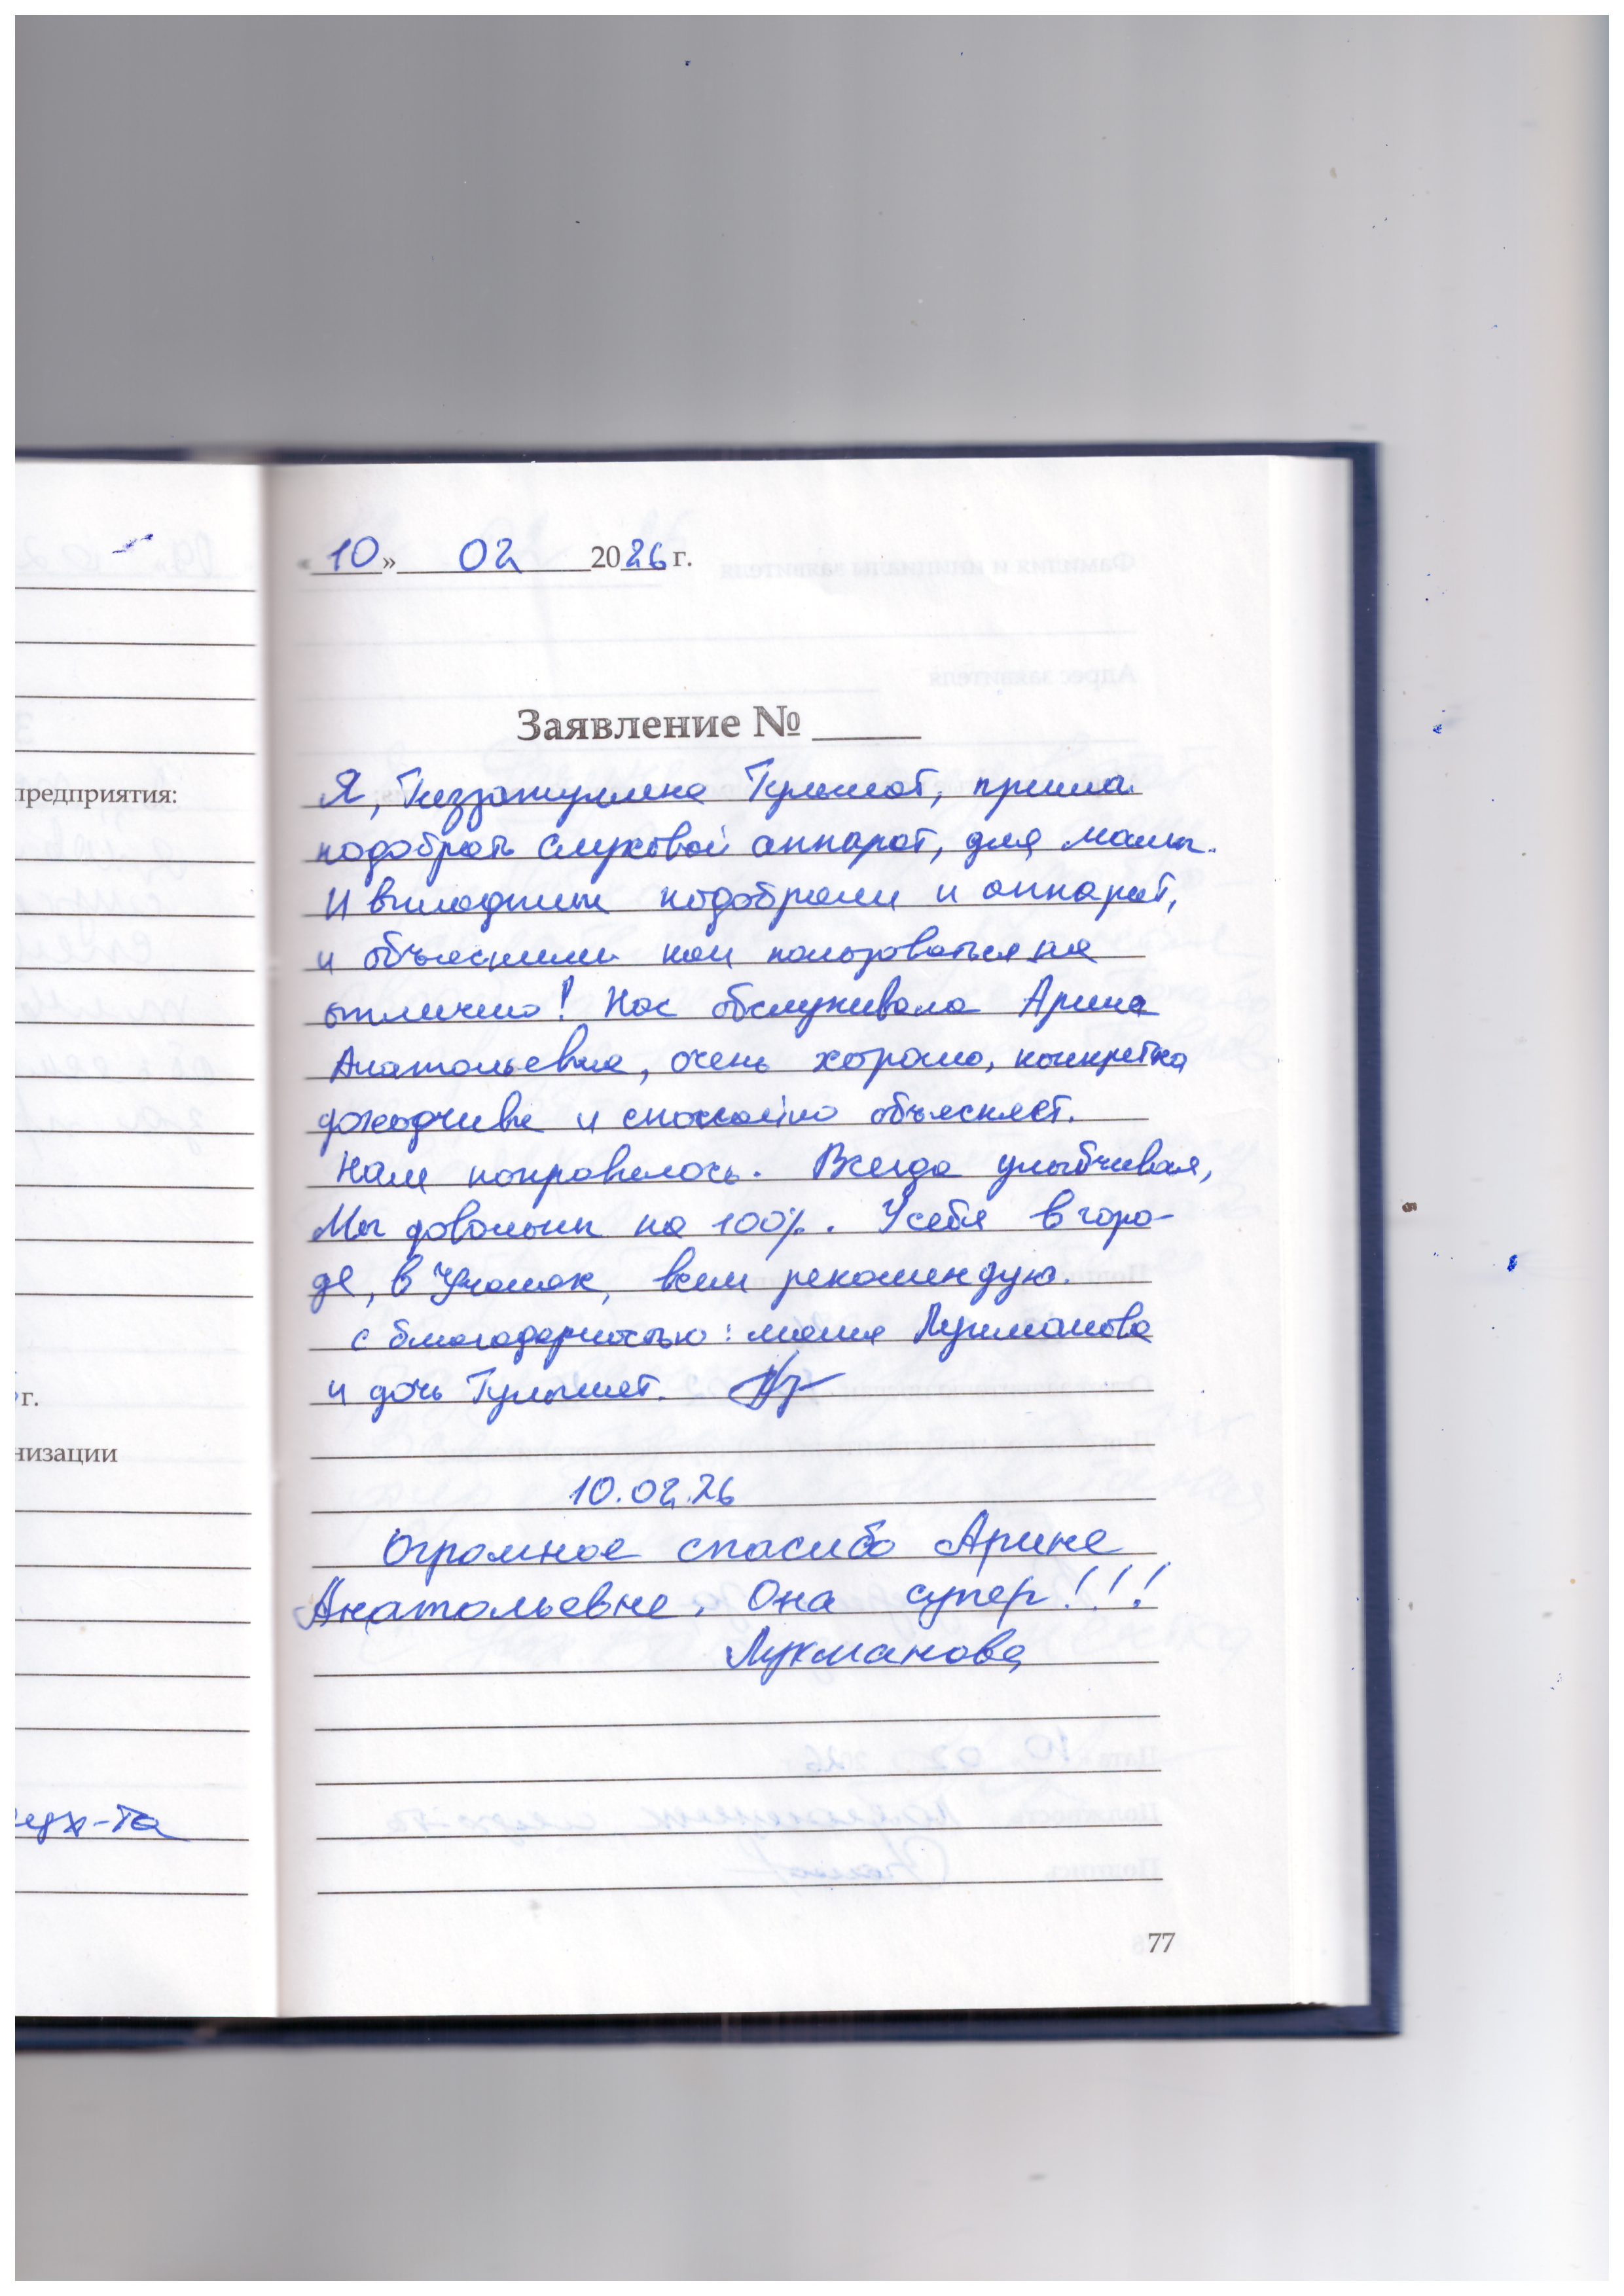 «10» 02 2026 г.
Заявление №
Я, Гиззатуллина Гульшат, пришла
подобрать слуховой аппарат, для мамы.
И вкладыши подобрали и аппарат,
и объяснили как пользоваться на
отлично! Нас обслуживала Арина
Анатольевна, очень хорошо, конкретно
доходчиво и спокойно объясняет.
Нам понравилось. Всегда улыбчивая,
Мы довольны на 100%. У себя в горо-
де, в всем рекомендую.
с благодарностью: мама Лукманова
и дочь Гульшат.
10.02.26
Огромное спасибо Арине
Анатольевне. Она супер!!!
Лукманова
77
предприятия:
г.
низации